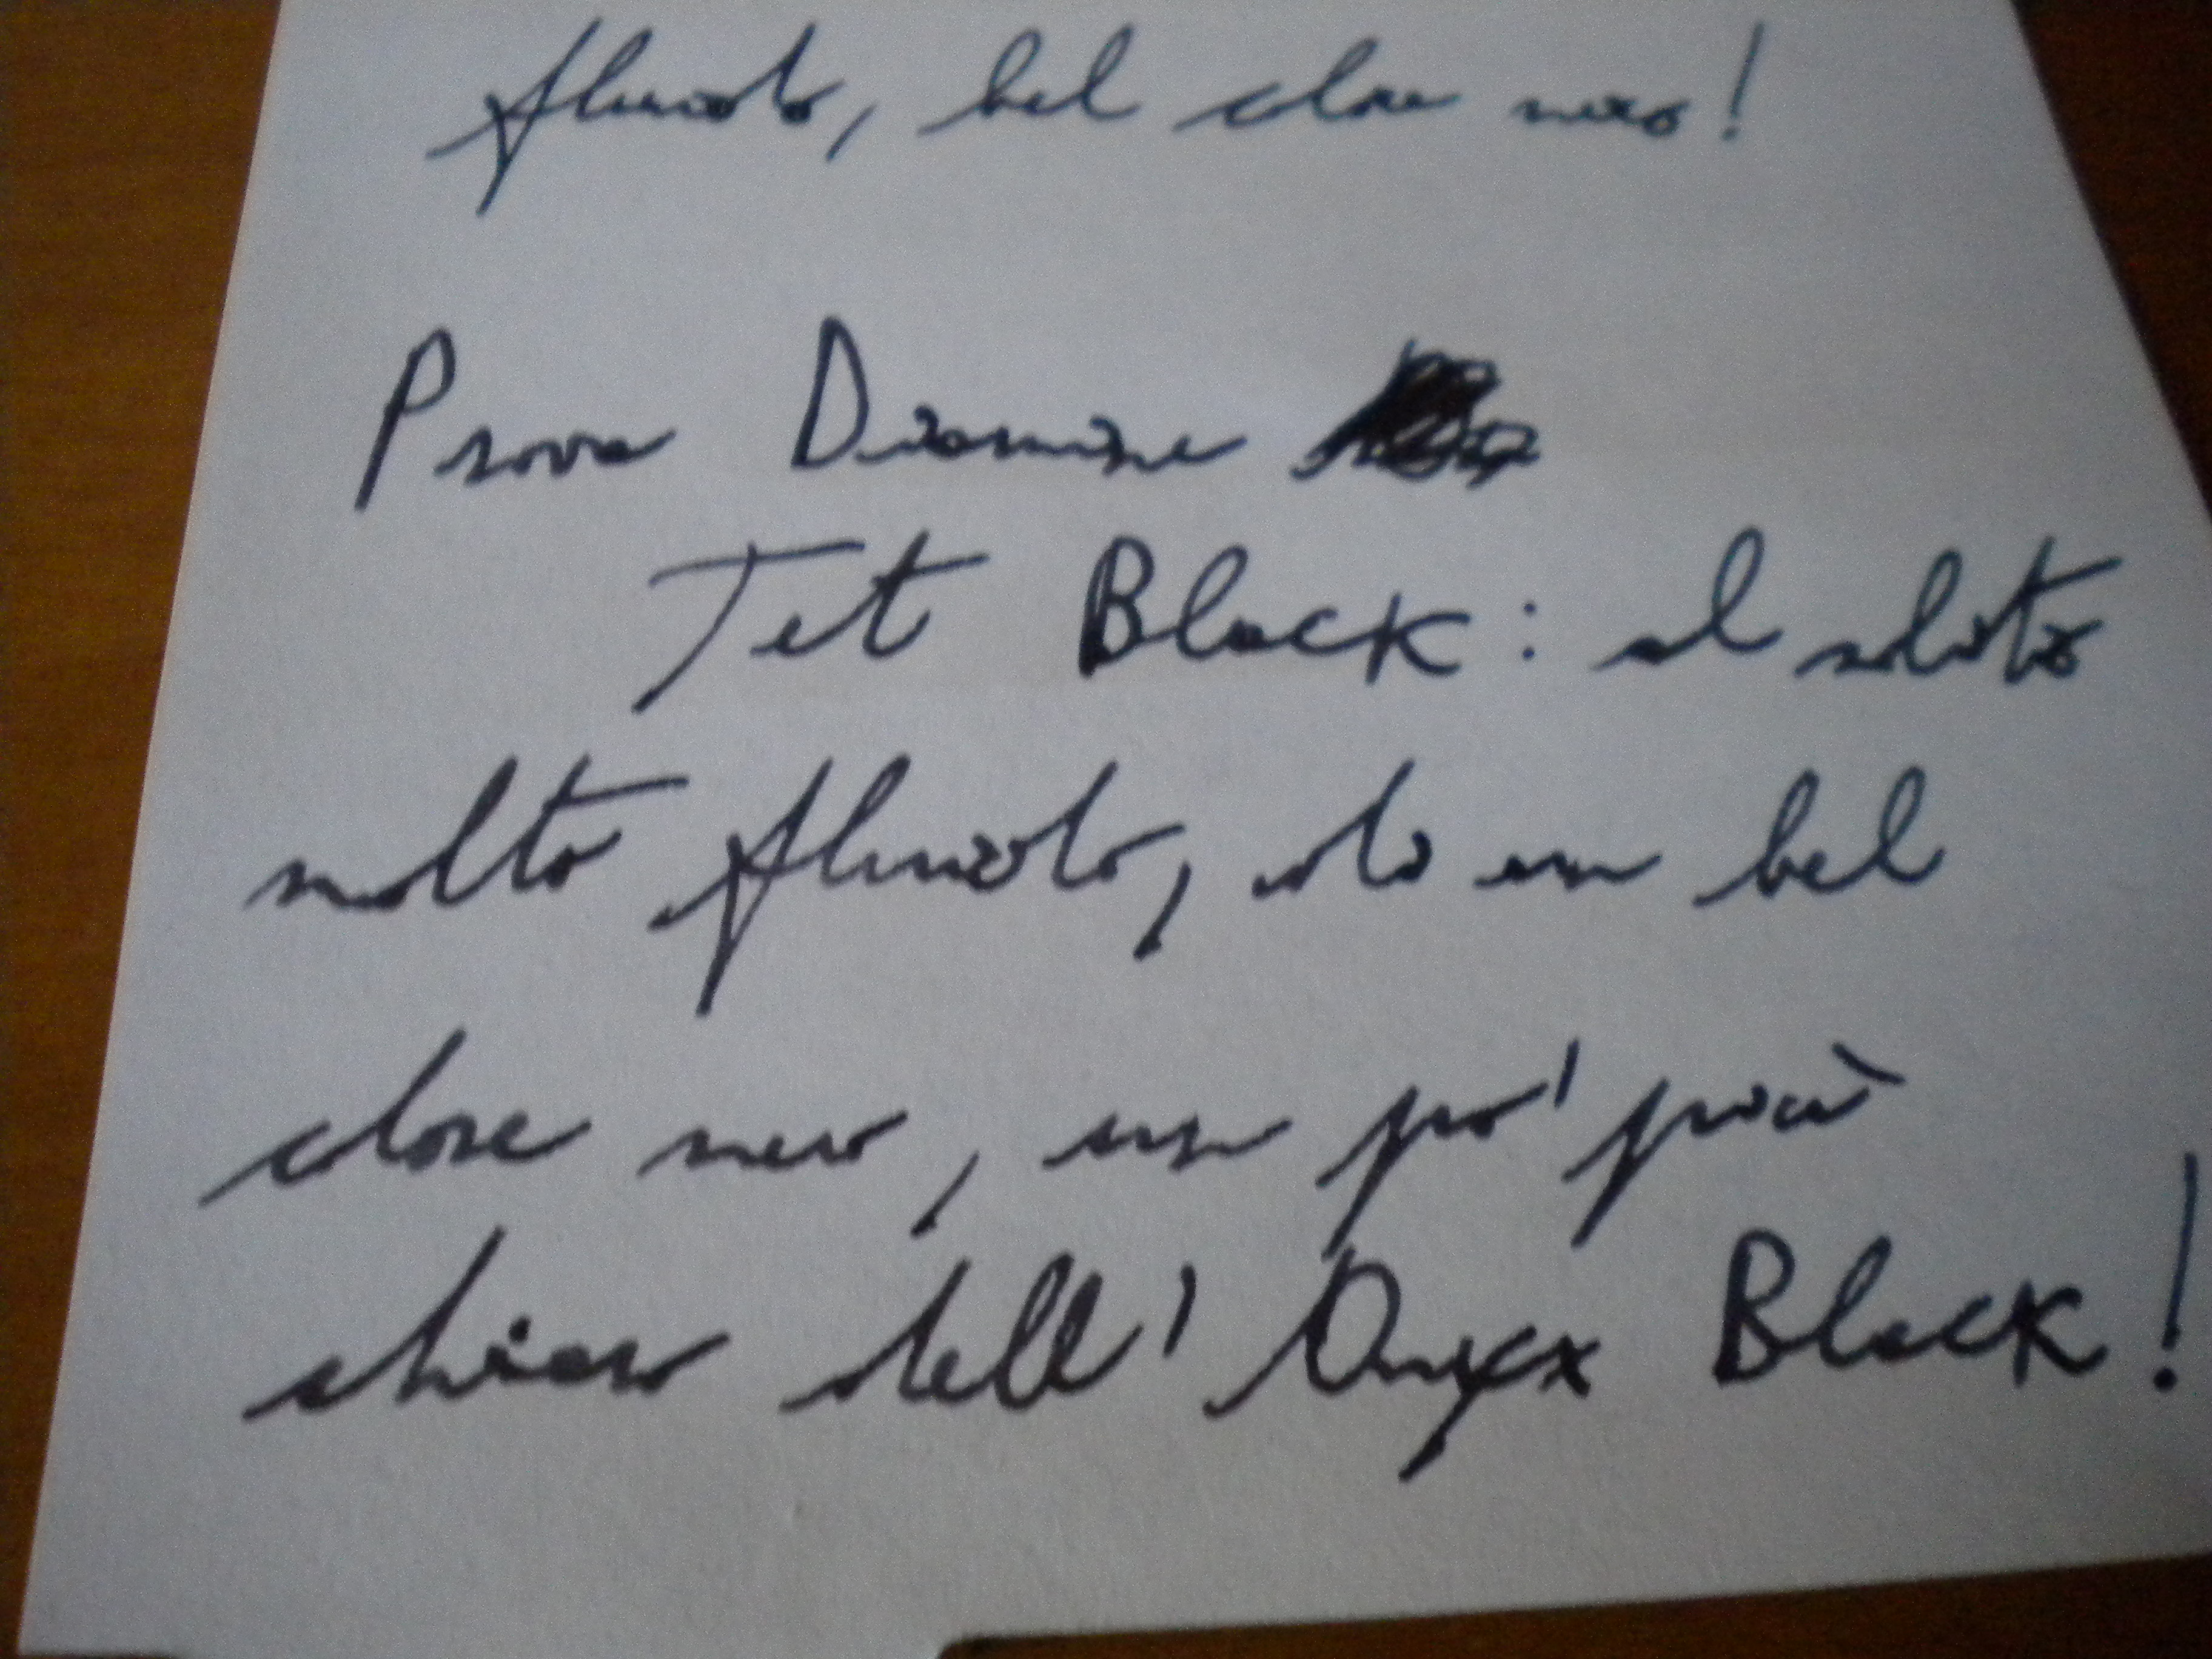 fluido, bel colore nero!
Prova Diamine
Jet Black: al solito
molto fluido, dà un bel
colore nero, un po' più
chiaro dell'Onyx Black!